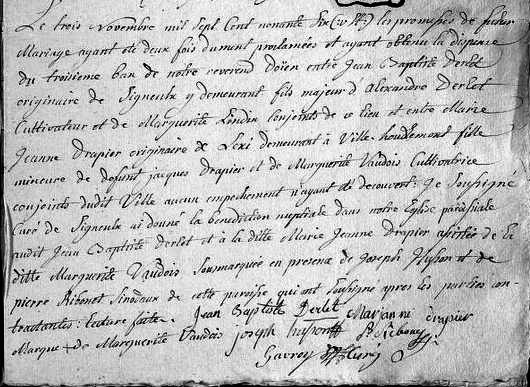 Le trois Novembre mil Sept Cent nonante Six les promesses de futur
Mariage ayant de deux fois dument proclamées et ayant obtenu la dispense
du troisieme ban de notre reverend Doïen entre Jean Baptiste Derlet
originaire de Signeulx y demeurant fils majeur d'Alexandre Derlet
Cultivateur et de Marguerite Lindin Conjoints de ce lieu et entre Marie
Jeanne Drapier originaire de Lexi demeurant à Ville-houdlemont fille
mineure de defunt jacques Drapier et de Marguerite Vaudois Cultivatrice
conjoints dudit Ville aucun empechement n'ayant été decouvert: Je Soussigné
Curé de Signeulx ai donné la benediction nuptiale dans notre Eglise paroissiale
audit Jean Baptiste Derlet et à la ditte Marie Jeanne Drapier assistée de la
ditte Marguerite Vaudois Sousmarquée en presence de Joseph husson et de
pierre Ribonet Sinodaux de cette paroisse qui ont soussigné apres les parties con-
tractantes: lecture faite. Jean Baptiste Derlet Marianne drapier
Marque + de Marguerite Vaudois joseph husson
Gavroy